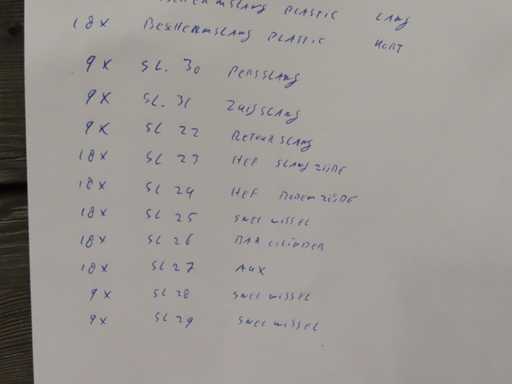 PLASTIC LANG
18X BESCHERMSLANG PLASTIC KORT
9X SL. 30 PERSSLANG
9X SL. 31 ZUIGSLANG
9X SL 22 RETOURSLANG
18X SL 23 HEF SLANGZIJDE
18X SL 24 HEF BODEMZIJDE
18X SL 25 SNELWISSEL
18X SL 26 CILINDER
18X SL 27 AUX
9X SL 28 SNELWISSEL
9X SL 29 SNELWISSEL